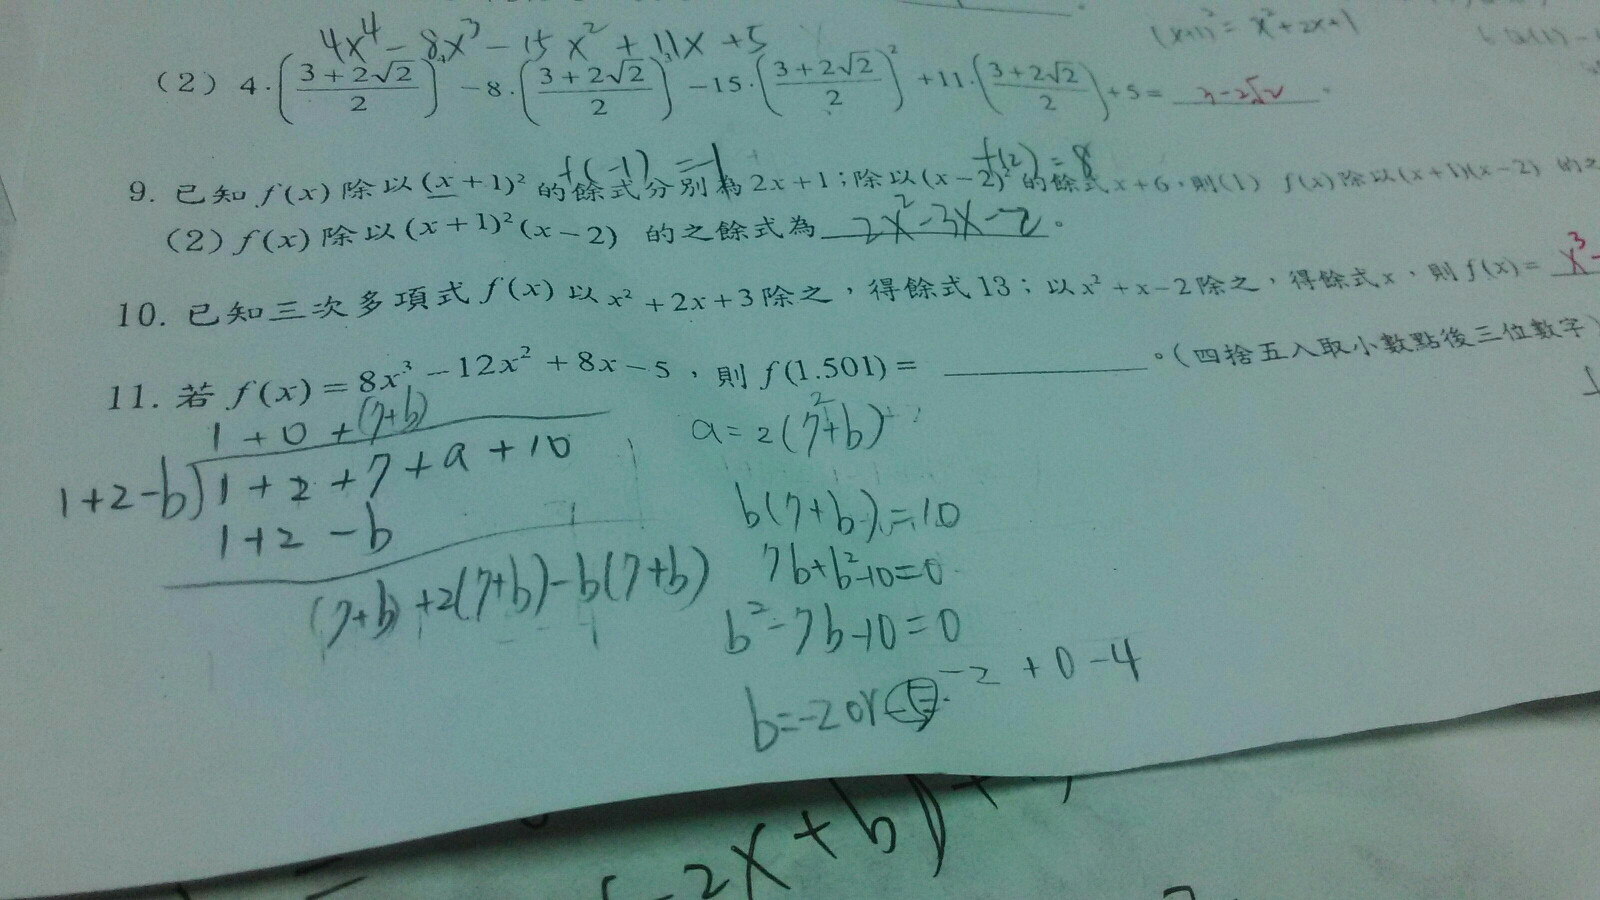 (x+1)² = x²+2x+1
4x⁴ - 8x³ - 15x² + 11x + 5
(2) 4·((3+2√2)/2)⁴ -8·((3+2√2)/2)³ -15·((3+2√2)/2)² +11·((3+2√2)/2)+5= 3-2√2 。
f(-1) = -1 f(2) = 8
9. 已知 f(x) 除以 (x+1)² 的餘式分別為 2x+1；除以 (x-2)² 的餘式 x+6，則(1) f(x) 除以 (x+1)(x-2) 的之
(2) f(x) 除以 (x+1)²(x-2) 的之餘式為 2x²-3x-2 。
10. 已知三次多項式 f(x) 以 x²+2x+3 除之，得餘式 13；以 x²+x-2 除之，得餘式 x，則 f(x)= x³-
11. 若 f(x)=8x³-12x²+8x-5，則 f(1.501)= 。(四捨五入取小數點後三位數字)
1+0+(7+b)
1+2-b)1+2+7+a+10
1+2-b
(7+b)+2(7+b)-b(7+b)
a=2(7+b)
b(7+b)=10
7b+b²-10=0
b²-7b-10=0
b=-2 or
-2+0-4
-2x+b)+